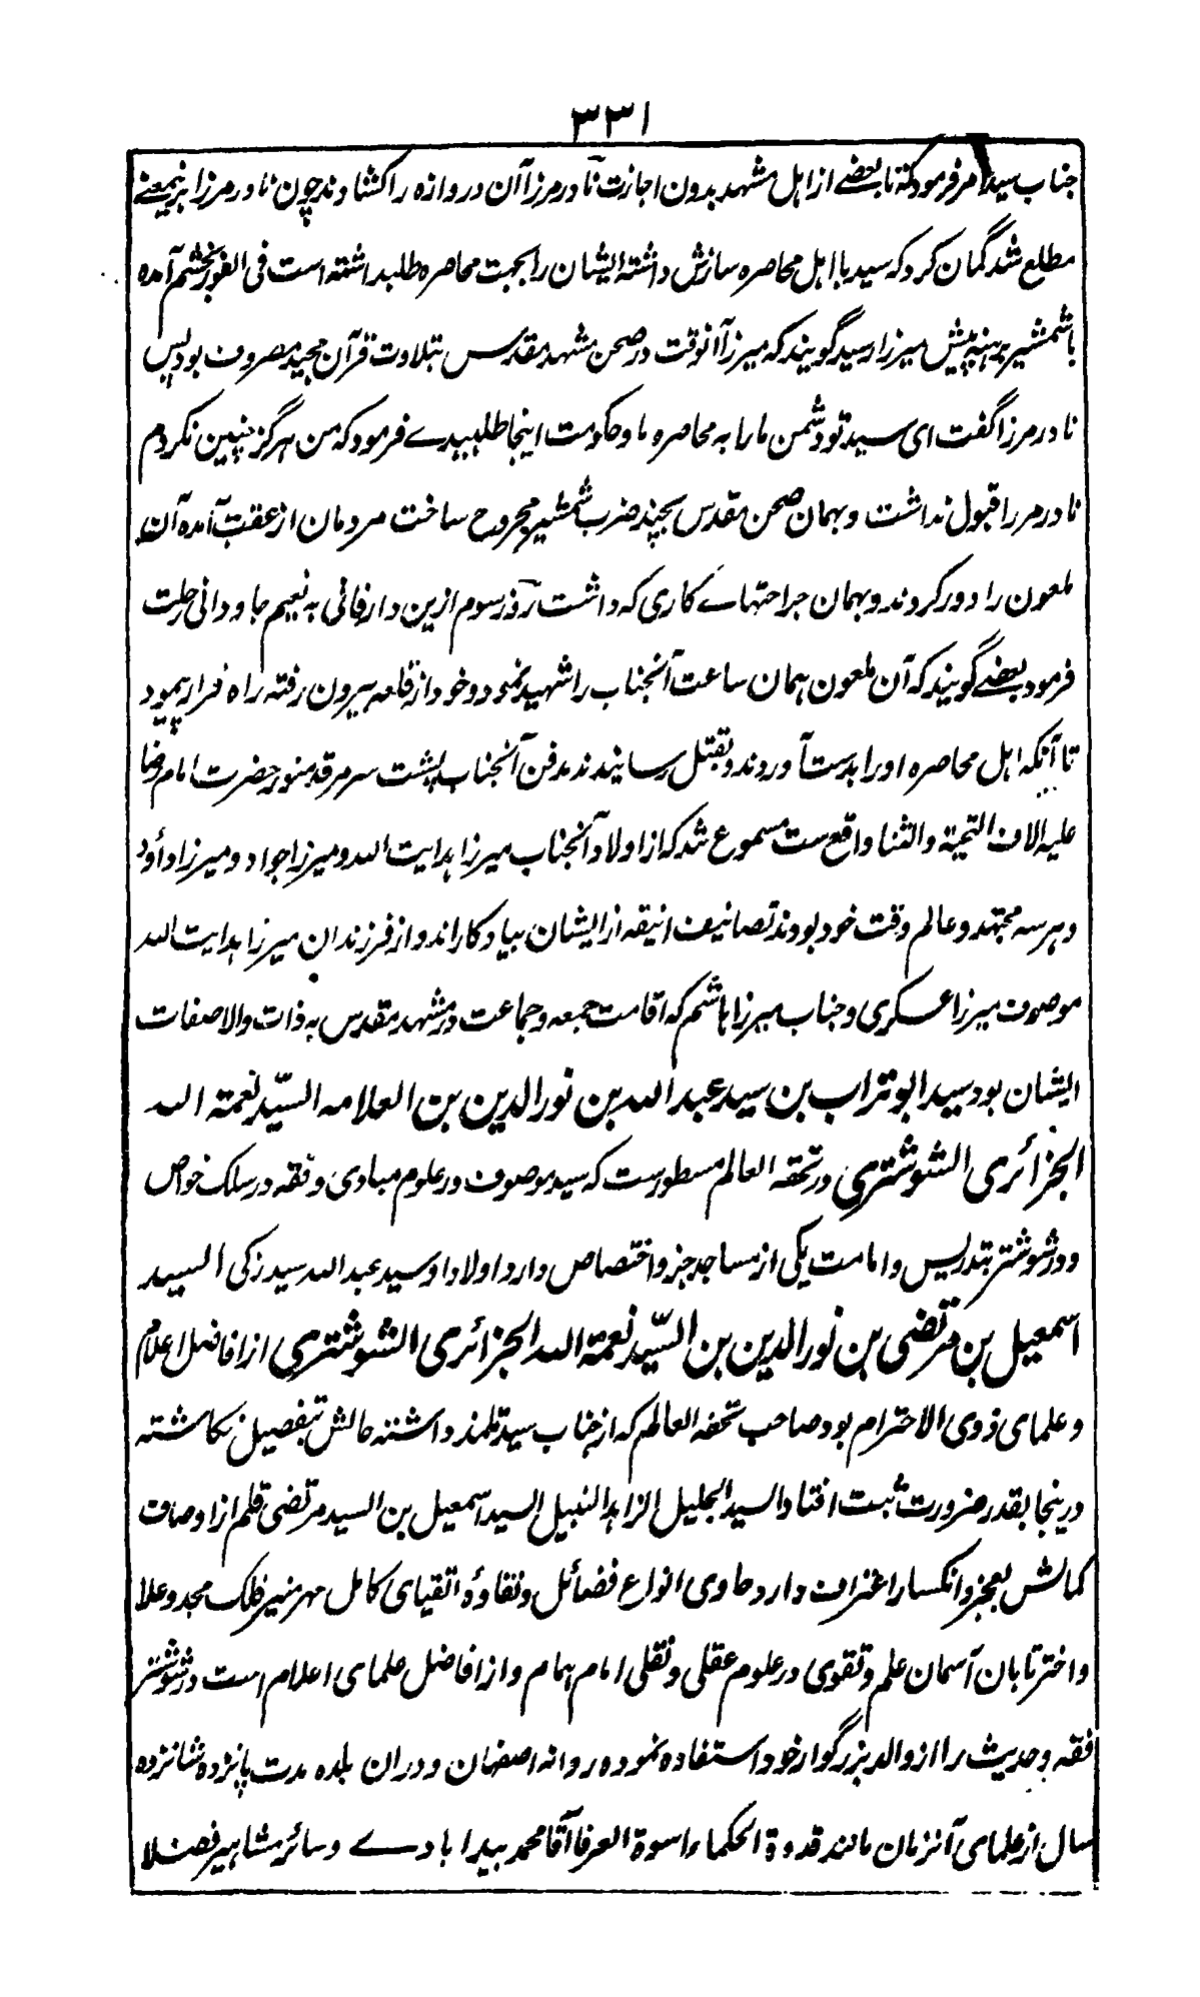 ۳۳۱
جناب سید امر فرمودکه تا بعضے از اهل مشهد بدون اجازت نادر مرزا آن دروازه را کشادند چون نادر مرزا برینمعنے
مطلع شد گمان کرد که سید با اهل محاصره سازش داشته ایشان را بجهت محاصره طلبداشته است فی الفور بخشم آمده
با شمشیر برهنه پیش میرزا رسید گویند که میرزا آنوقت در صحن مشهد مقدس بتلاوت قرآن مجید مصروف بود پس
نادر مرزا گفت ای سید تو دشمن ما را به محاصره ما و حکومت اینجا طلبیدے فرمود که من هرگز چنین نکردم
نادر مرزا قبول نداشت و بهمان صحن مقدس بچند ضرب شمشیر مجروح ساخت مردمان از عقب آمده آن
ملعون را دور کردند و بهمان جراحتهاے کاری که داشت روز سوم ازین دار فانی به نعیم جاودانی رحلت
فرمود بعضے گویند که آن ملعون همان ساعت آنجناب را شهید نمود و خود از قلعه بیرون رفته راه فرار پیمود
تا آنکه اهل محاصره او را بدست آوردند و بقتل رسانیدند مدفن آنجناب پشت سر مرقد منور حضرت امام رضا
علیه الاف التحیة والثنا واقع ست مسموع شد که از اولاد آنجناب میرزا هدایت الله و میرزا جواد و میرزا داؤد
و هر سه مجتهد و عالم وقت خود بودند تصانیف انیقه از ایشان بیادگار اند و از فرزندان میرزا هدایت الله
موصوف میرزا عسکری و جناب میرزا هاشم که اقامت جمعه و جماعت در مشهد مقدس به ذات والا صفات
ایشان بود سید ابو تراب بن سید عبد الله بن نور الدین بن العلامه السیّد نعمة الله
الجزائری الشوشتری در تحفة العالم مسطور ست که سید موصوف در علوم مبادی و فقه در سلک خواص
و در شوشتر بتدریس و امامت یکی از مساجد جزو اختصاص دارد اولاد او سید عبد الله سید زکی السید
اسمعیل بن مرتضی بن نور الدین بن السیّد نعمة الله الجزائری الشوشتری از افاضل اعلام
و علمای ذوی الاحترام بود صاحب تحفه العالم که از جناب سید تلمذ داشته حالش بتفصیل نگاشته
درینجا بقدر ضرورت ثبت افتاد السید الجلیل الزاهد النبیل السید اسمعیل بن السید مرتضی قلم از اوصاف
کمالش بعجز و انکسار اعتراف دارد حاوی انواع فضائل و نقاوهٔ اتقیای کامل مهر منیر فلک مجد و علا
و اختر تابان آسمان علم و تقوی در علوم عقلی و نقلی امام همام و از افاضل علمای اعلام است در شوشتر
فقه و حدیث را از والد بزرگوار خود استفاده نموده روانه اصفهان و دران بلده مدت پانزده شانزده
سال از علمای آنزمان مانند قدوة الحکماء اسوة العرفا آقا محمد بیدابادے و سائر مشاهیر فضلا